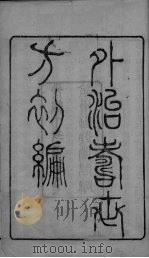 外治壽世
方初編
研狗
mtoou.info